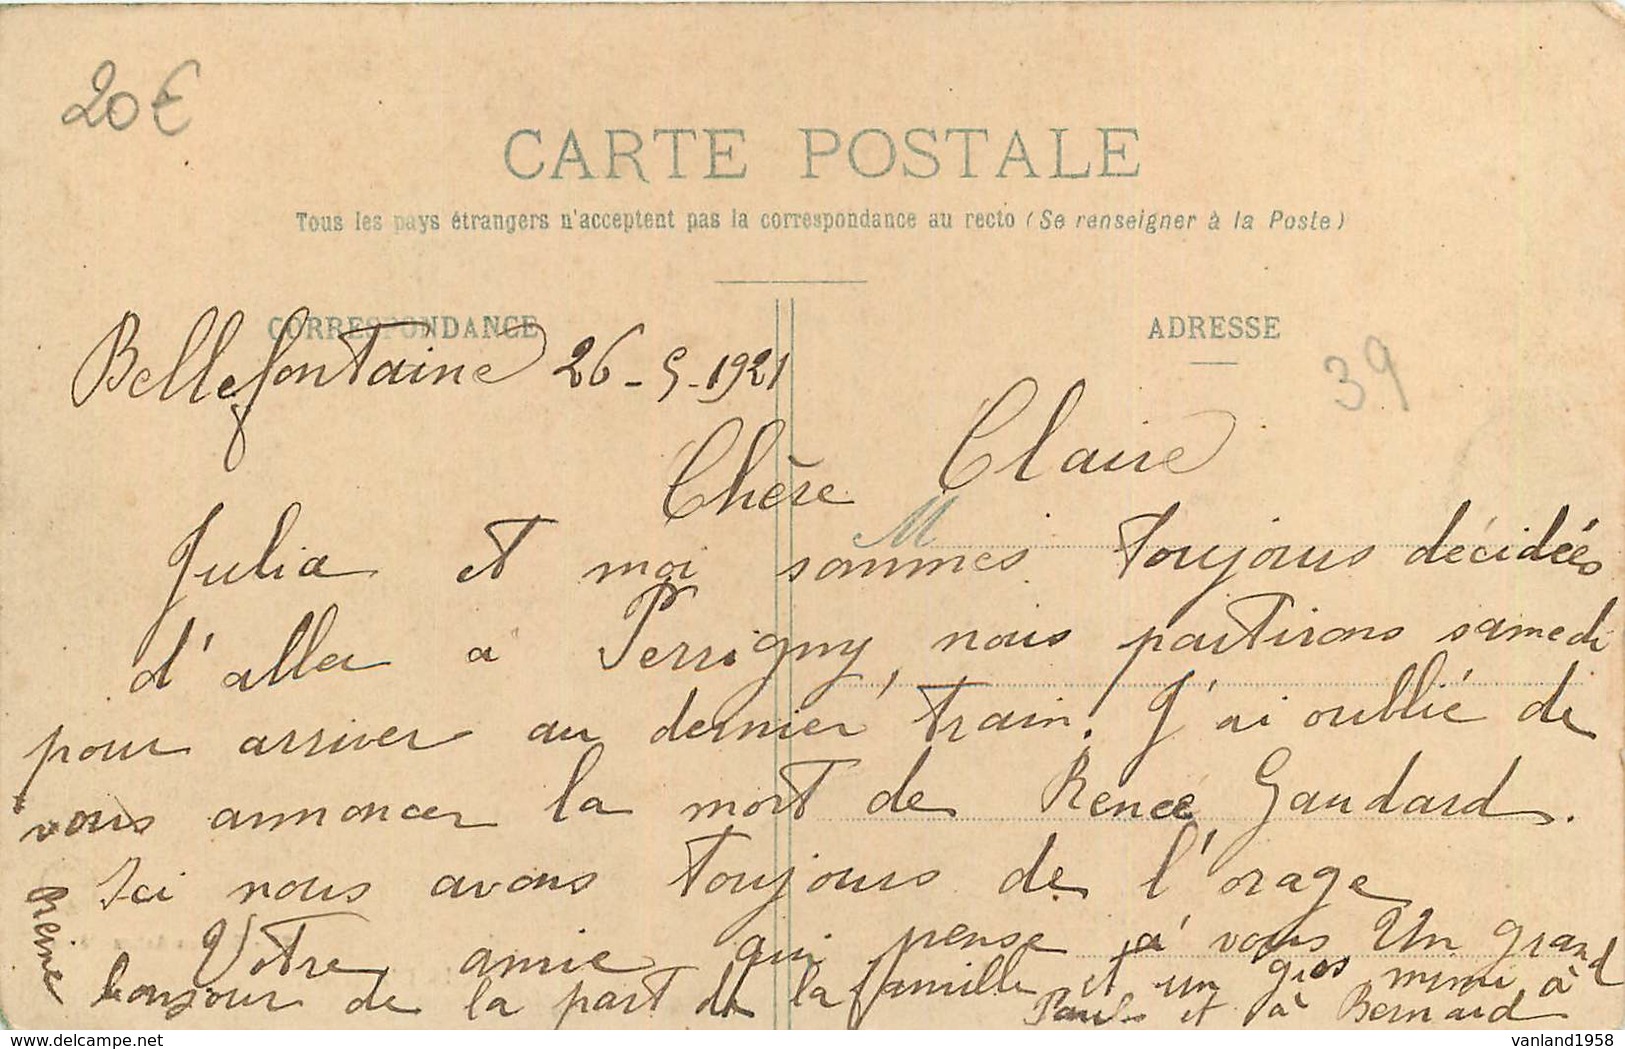 20€
CARTE POSTALE
Tous les pays étrangers n'acceptent pas la correspondance au recto (Se renseigner à la Poste)
CORRESPONDANCE
ADRESSE
39
Bellefontaine 26-5-1921
Chère Claire
M
Julia et moi sommes toujours décidées
d'aller a Perrigny, nous partirons samedi
pour arriver au dernier train. J'ai oublié de
vous annoncer la mort de Renée Gaudard.
Ici nous avons toujours de l'orage
Votre amie qui pense à vous Un grand
bonjour de la part de la famille et un gros mimi à
Paul et à Bernard
Reine
vanland1958